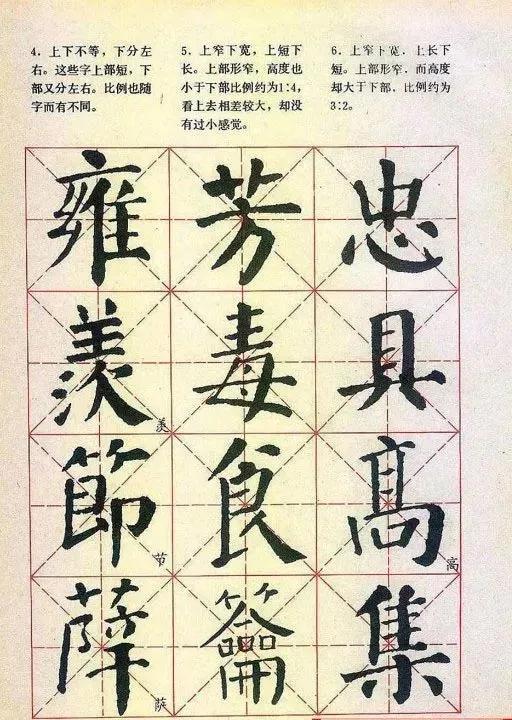 4．上下不等，下分左
右。这些字上部短，下
部又分左右。比例也随
字而有不同。
5．上窄下宽，上短下
长。上部形窄，高度也
小于下部比例约为1:4，
看上去相差较大，却没
有过小感觉。
6．上窄下宽．上长下
短。上部形窄．而高度
却大于下部．比例约为
3:2。
雍 芳 忠
羨 羡 毒 具
節 节 食 髙 高
薛 萨 籥 集